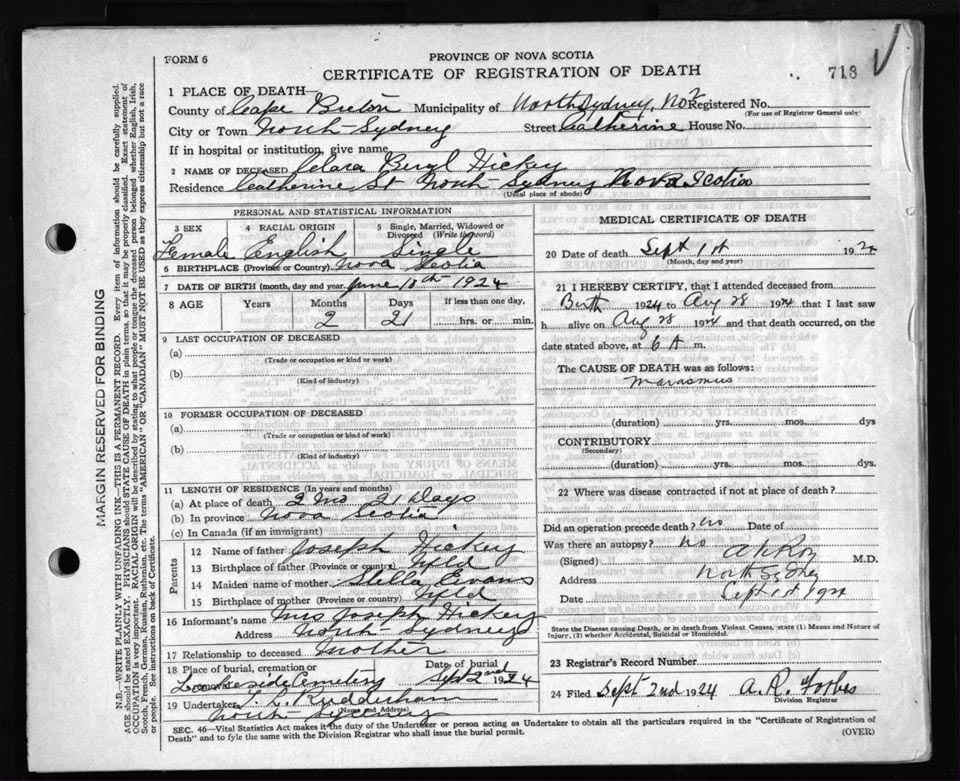 FORM 6
PROVINCE OF NOVA SCOTIA
CERTIFICATE OF REGISTRATION OF DEATH
713
1 PLACE OF DEATH
County of Cape Breton Municipality of North Sydney, No 2 Registered No.
(For use of Registrar General only)
City or Town North Sydney Street Catherine House No.
If in hospital or institution, give name
2 NAME OF DECEASED Clara Beryl Hickey
Residence Catherine St North Sydney Nova Scotia
(Usual place of abode)
PERSONAL AND STATISTICAL INFORMATION
3 SEX 4 RACIAL ORIGIN 5 Single, Married, Widowed or Divorced (Write the word)
Female English Single
6 BIRTHPLACE (Province or Country) Nova Scotia
7 DATE OF BIRTH (month, day and year) June 10th 1924
8 AGE Years Months Days If less than one day,
2 21 hrs. or min.
9 LAST OCCUPATION OF DECEASED
(a)
(Trade or occupation or kind or work)
(b)
(Kind of industry)
10 FORMER OCCUPATION OF DECEASED
(a)
(Trade or occupation or kind or work)
(b)
(Kind of industry)
11 LENGTH OF RESIDENCE (In years and months)
(a) At place of death 2 Mo 21 Days
(b) In province Nova Scotia
(c) In Canada (if an immigrant)
Parents
12 Name of father Joseph Hickey
13 Birthplace of father (Province or country) Nfld
14 Maiden name of mother Stella Evans
15 Birthplace of mother (Province or country) Nfld
16 Informant's name Mrs Joseph Hickey
Address North Sydney
17 Relationship to deceased Mother
18 Place of burial, cremation or Date of burial
Lakeside Cemetery Sept 2nd 1924
19 Undertaker
(Name and Address)
North Sydney
MEDICAL CERTIFICATE OF DEATH
20 Date of death Sept 1st 1924
(Month, day and year)
21 I HEREBY CERTIFY, that I attended deceased from
Birth 1924 to Aug 28 1924 that I last saw
h alive on Aug 28 1924 and that death occurred, on the
date stated above, at 6 A m.
The CAUSE OF DEATH was as follows:
Marasmus
(duration) yrs. mos. dys
CONTRIBUTORY
(Secondary)
(duration) yrs. mos. dys.
22 Where was disease contracted if not at place of death?
Did an operation precede death? no Date of
Was there an autopsy? no
(Signed) M.D.
Address North Sydney
Date Sept 1st 1924
State the Disease causing Death, or in death from Violent Causes, state (1) Means and Nature of Injury, (2) whether Accidental, Suicidal or Homicidal.
23 Registrar's Record Number
24 Filed Sept 2nd 1924 A.R. Forbes
Division Registrar
SEC. 46—Vital Statistics Act makes it the duty of the Undertaker or person acting as Undertaker to obtain all the particulars required in the "Certificate of Registration of
Death" and to fyle the same with the Division Registrar who shall issue the burial permit. (OVER)
MARGIN RESERVED FOR BINDING
N.B.—WRITE PLAINLY WITH UNFADING INK—THIS IS A PERMANENT RECORD. Every item of information should be carefully supplied.
AGE should be stated EXACTLY. PHYSICIANS should STATE CAUSE OF DEATH in plain terms, so that it may be properly classified. Exact statement of
OCCUPATION is very important. RACIAL ORIGIN will be described by stating to what people or tongue the deceased person belonged whether English, Irish,
Scotch, French, German, Russian, Ruthenian, etc. The terms "AMERICAN" OR "CANADIAN" MUST NOT BE USED as they express citizenship but not a race
or people. See instructions on back of Certificate.